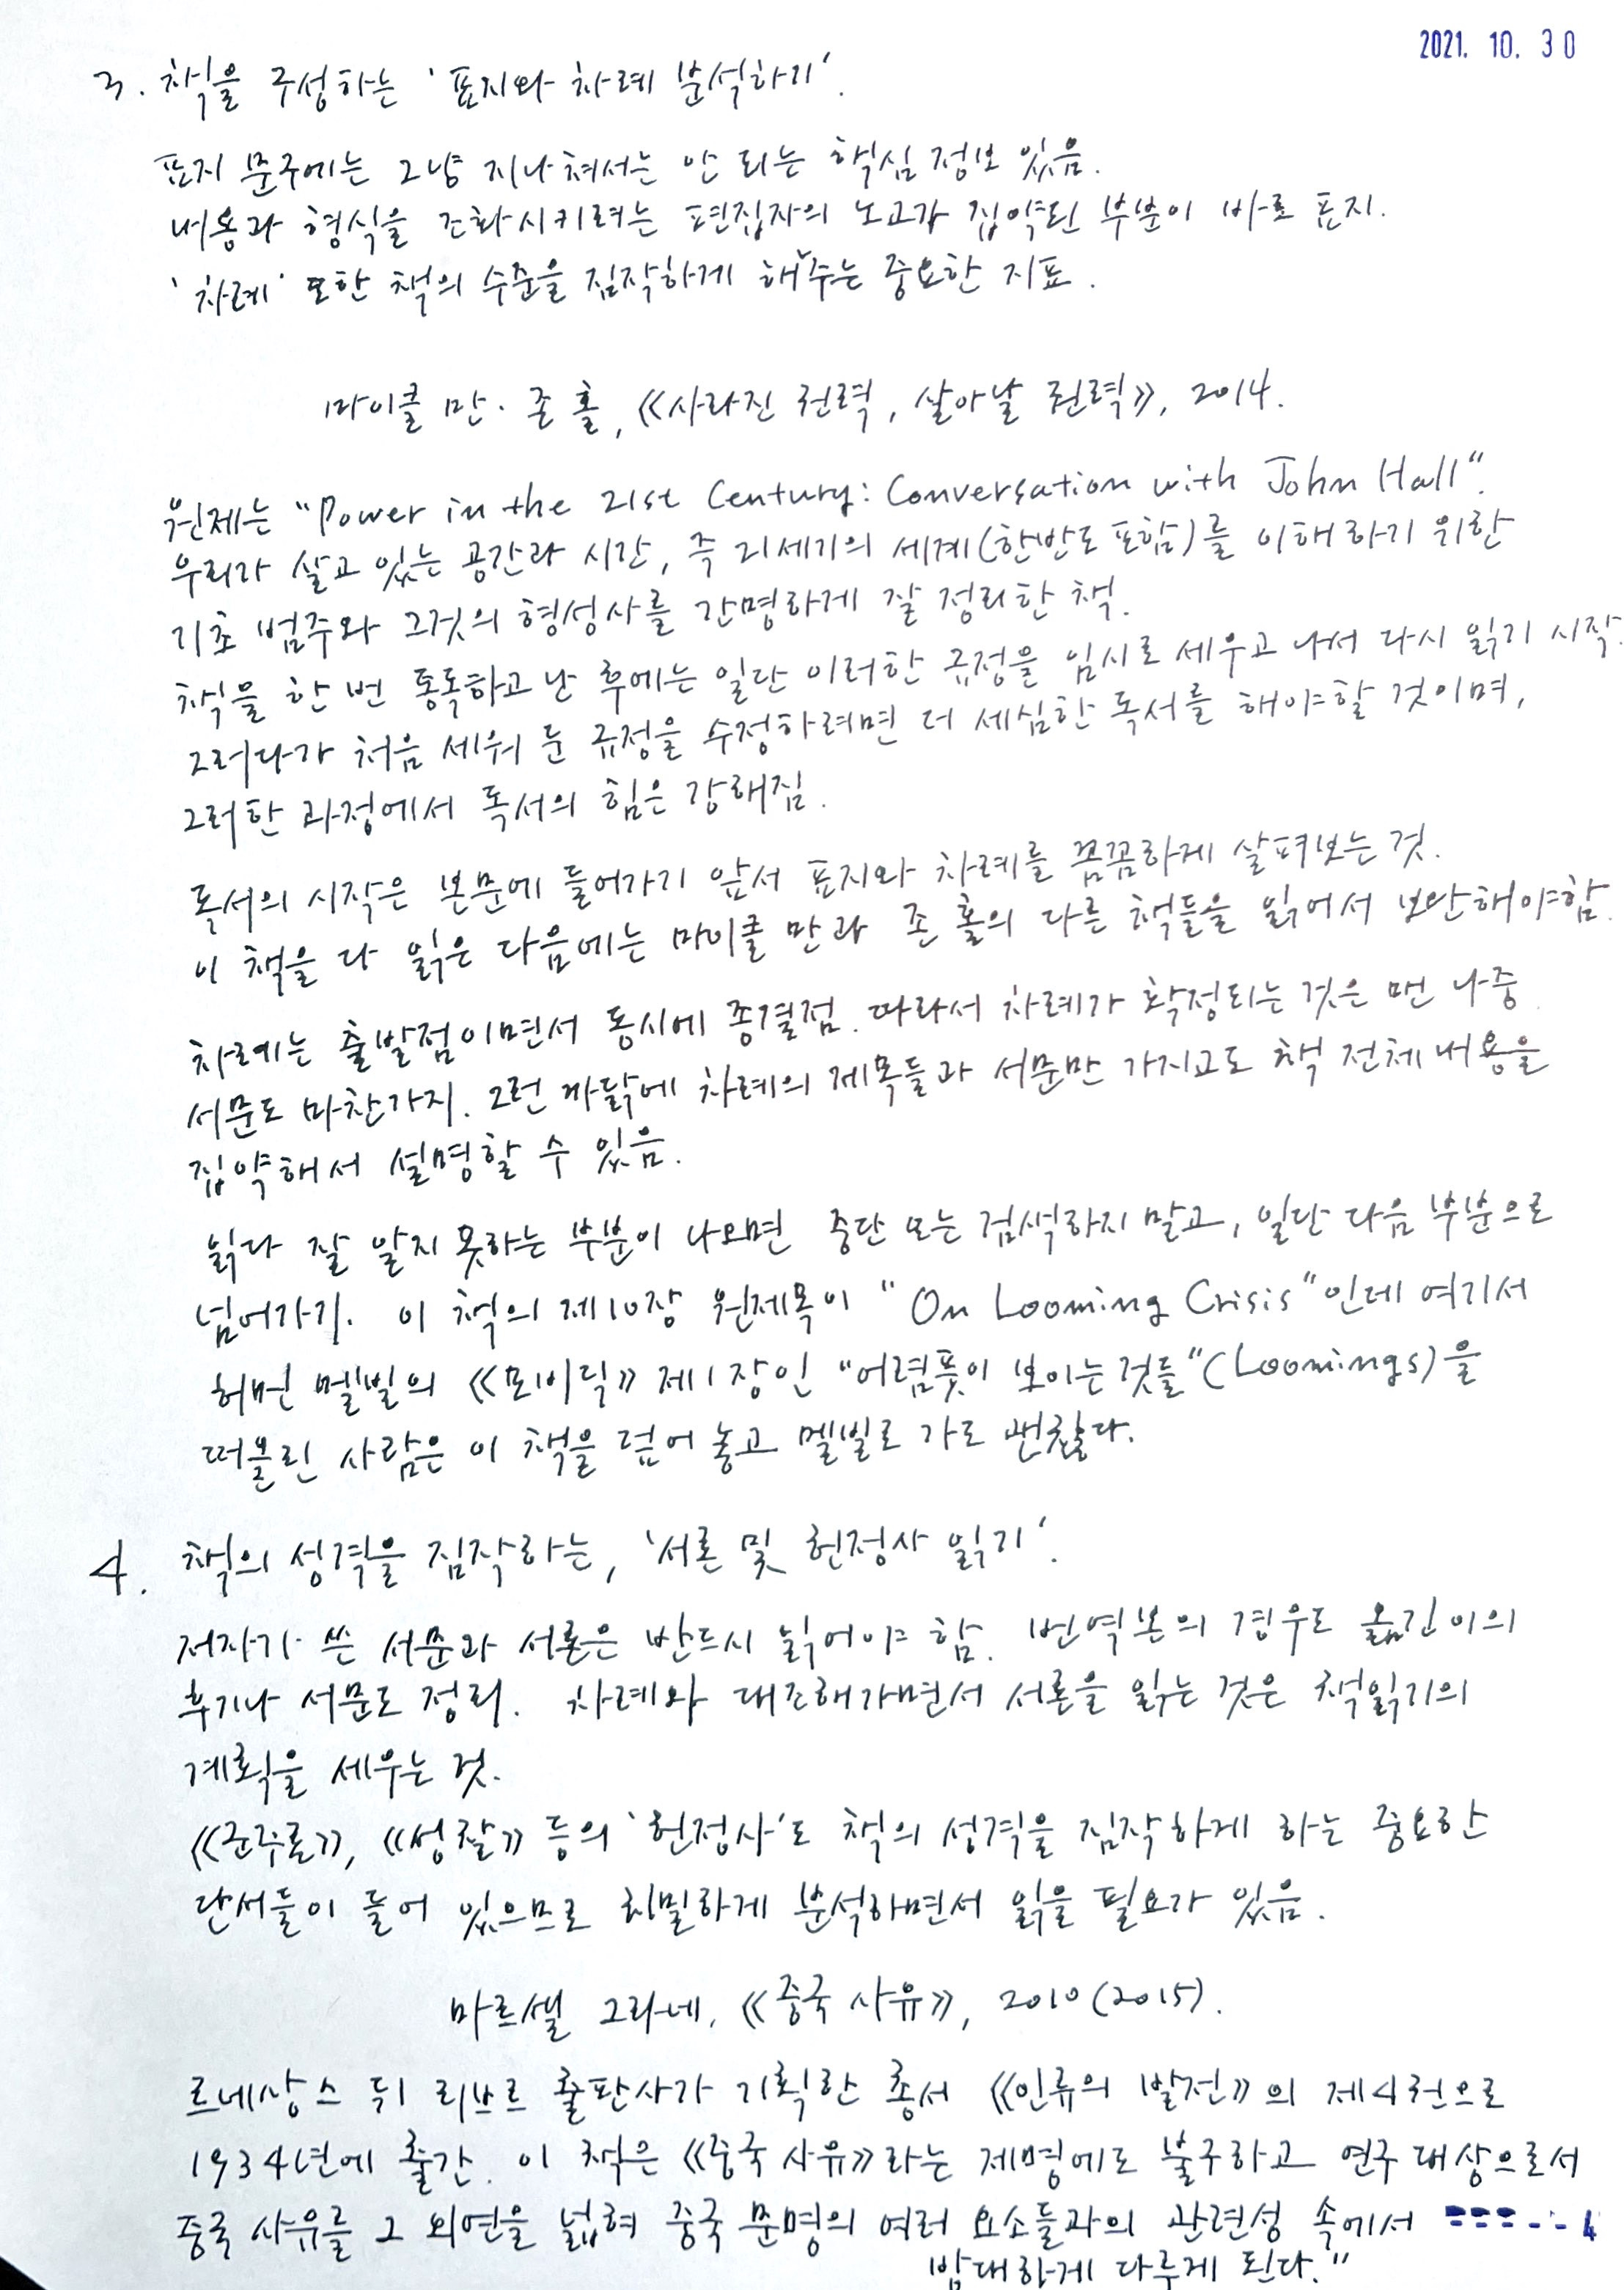 2021. 10. 30
3. 책을 구성하는 '표지와 차례 분석하기'.
표지 문구에는 그냥 지나쳐서는 안 되는 핵심 정보 있음.
내용과 형식을 조화시키려는 편집자의 노고가 집약된 부분이 바로 표지.
'차례' 또한 책의 수준을 짐작하게 해주는 중요한 지표.
마이클 만·존 홀, 《사라진 권력, 살아날 권력》, 2014.
원제는 "Power in the 21st Century: Conversation with John Hall".
우리가 살고 있는 공간과 시간, 즉 21세기의 세계(한반도 포함)를 이해하기 위한
기초 범주와 그것의 형성사를 간명하게 잘 정리한 책.
책을 한 번 통독하고 난 후에는 일단 이러한 규정을 임시로 세우고 나서 다시 읽기 시작.
그러다가 처음 세워 둔 규정을 수정하려면 더 세심한 독서를 해야할 것이며,
그러한 과정에서 독서의 힘은 강해짐.
독서의 시작은 본문에 들어가기 앞서 표지와 차례를 꼼꼼하게 살펴보는 것.
이 책을 다 읽은 다음에는 마이클 만과 존 홀의 다른 책들을 읽어서 보완해야함.
차례는 출발점이면서 동시에 종결점. 따라서 차례가 확정되는 것은 맨 나중.
서문도 마찬가지. 그런 까닭에 차례의 제목들과 서문만 가지고도 책 전체 내용을
집약해서 설명할 수 있음.
읽다 잘 알지 못하는 부분이 나오면 중단 또는 검색하지 말고, 일단 다음 부분으로
넘어가기. 이 책의 제10장 원제목이 "On Looming Crisis"인데 여기서
허먼 멜빌의 《모비딕》 제1장인 "어렴풋이 보이는 것들"(Loomings)을
떠올린 사람은 이 책을 덮어 놓고 멜빌로 가도 괜찮다.
4. 책의 성격을 짐작하는, '서론 및 헌정사 읽기'.
저자가 쓴 서문과 서론은 반드시 읽어야 함. 번역본의 경우도 옮긴이의
후기나 서문도 정리. 차례와 대조해가면서 서론을 읽는 것은 책읽기의
계획을 세우는 것.
《군주론》, 《성찰》 등의 '헌정사'도 책의 성격을 짐작하게 하는 중요한
단서들이 들어 있으므로 치밀하게 분석하면서 읽을 필요가 있음.
마르셀 그라네, 《중국 사유》, 2010(2015).
르네상스 뒤 리브르 출판사가 기획한 총서 《인류의 발전》의 제4권으로
1934년에 출간. 이 책은 《중국 사유》라는 제명에도 불구하고 연구 대상으로서
중국 사유를 그 외연을 넓혀 중국 문명의 여러 요소들과의 관련성 속에서
방대하게 다루게 된다."